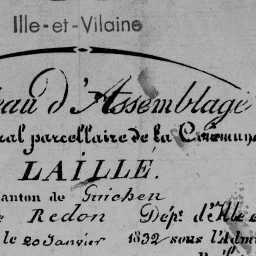 Ille-et-Vilaine
eau d'Assemblage
ral parcellaire de la Commune
LAILLÉ.
anton de Guichen
e Redon Dépt. d'Ille e
le 20 Janvier 1832 sous l'Adm